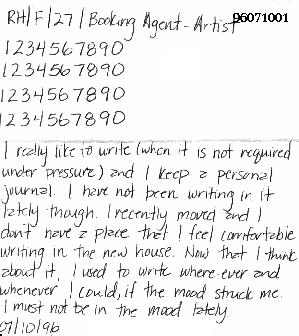 RH/F/27/Booking Agent-Artist 96071001
1234567890
1234567890
1234567890
1234567890
I really like to write (when it is not required
under pressure) and I keep a personal
journal. I have not been writing in it
lately though. I recently moved and I
don't have a place that I feel comfortable
writing in the new house. Now that I think
about it, I used to write where-ever and
whenever I could, if the mood struck me.
I must not be in the mood lately
07/10/96